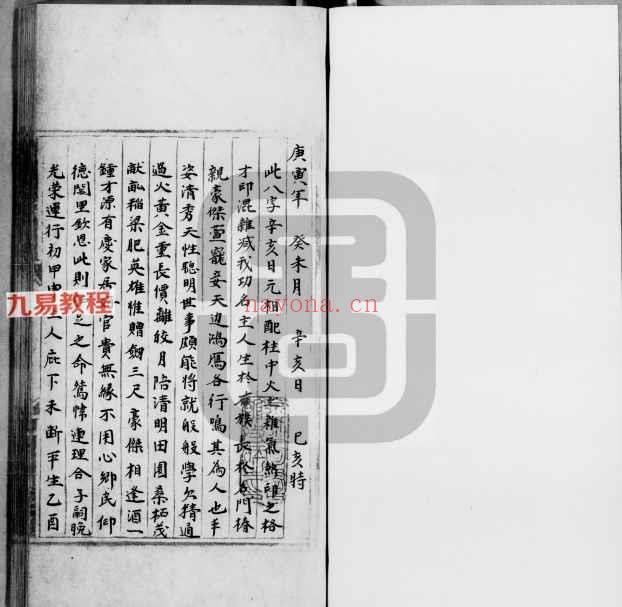 庚寅年 癸未月 辛亥日 己亥時
此八字辛亥日元相配柱中火土雜氣煞印之格
才印混雜減我功名主人生於 族長於名門椿
親豪傑萱寵妾天边鴻鴈各行鳴其為人也手
姿清秀天性聰明世事頗能將就般般學欠精通
過火黃金重長價離皎月陪清明田園桑柘茂
畝畝稻梁肥英雄惟贈劍三尺豪傑相逢酒一
鍾才源有慶家 官貴無緣不用心鄉民仰
德閭里欽恩此則 足之命鴛幃連理合子嗣晚
光榮運行初甲申 人庇下未斷平生乙酉
九易教程
nayona.cn